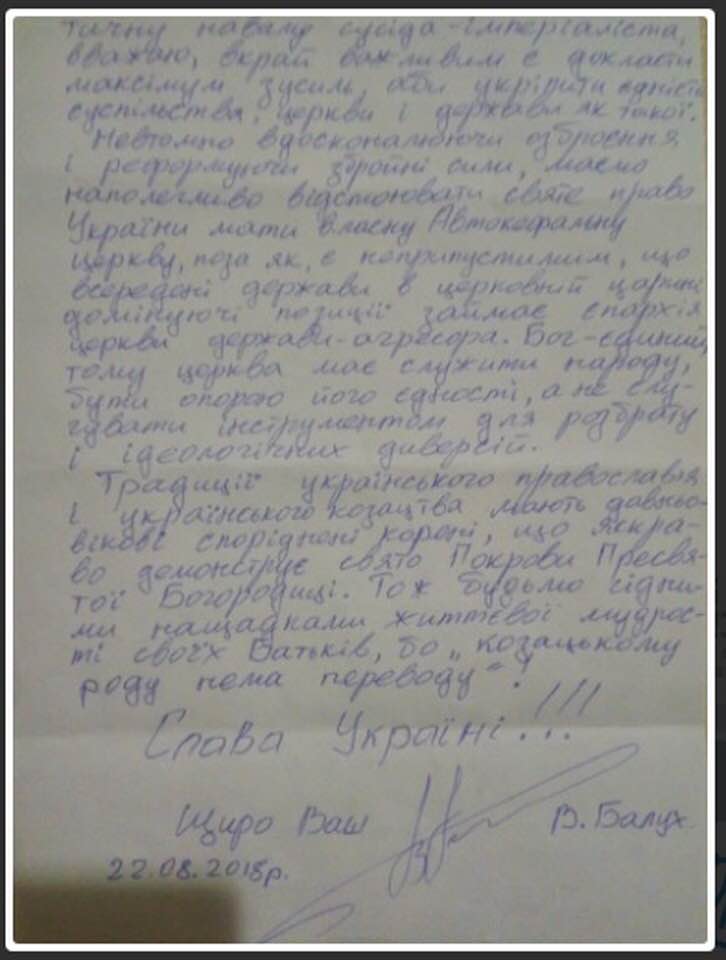 тичну навалу сусіда-імперіаліста,
вважаю, вкрай важливим є докласти
максімум зусиль, аби укріпити єдність
суспільства, церкви і держави як такої.
Невтомно вдосконалюючи озброєння
і реформуючи збройні сили, маємо
наполегливо відстоювати святе право
України мати власну Автокефальну
церкву, поза як, є неприпустимим, що
всередені держави в церковній царині
домінуючі позиції займає єпархія
церкви держави-агресора. Бог-єдиний,
тому церква має служити народу,
бути опорою його єдності, а не слу-
гувати інструментом для розбрату
і ідеологічних диверсій.
Традиції українського православія
і українського козацтва мають давньо-
вікові споріднені корені, що яскра-
во демонструє свято Покрови Пресвя-
тої Богородиці. Тож будьмо гідни-
ми нащадками життєвої мудрос-
ті своїх Батьків, бо „козацькому
роду нема переводу"!
Слава Україні!!!
Щиро Ваш В. Балух
22.08.2018р.